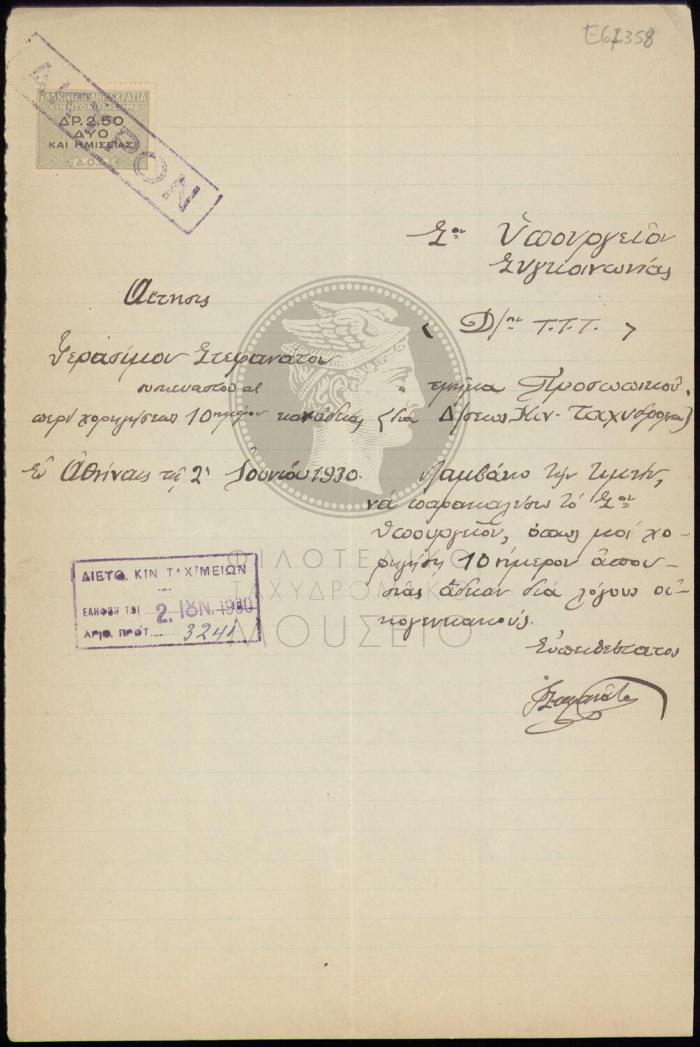 E67358
ΑΚΥΡΟΝ
ΕΛΛΗΝΙΚΗ ΔΗΜΟΚΡΑΤΙΑ
ΔΡ. 2.50
ΔΥΟ
ΚΑΙ ΗΜΙΣΕΙΑΣ
Δ.Ο.
Σον Ὑπουργεῖον
Συγκοινωνίας
Αίτησις
< Δ/σιν Τ.Τ.Τ. >
Γερασίμου Στεφανάτου
συσκευαστοῦ
" τμῆμα Προσωπικοῦ.
περί χορηγήσεως 10ημέρου
(διά Δ/σεως Κιν. Ταχυδρομείων)
Ἐν Ἀθήναις τῇ 2α Ἰουνίου 1930.
Λαμβάνω τήν τιμήν,
νά παρακαλέσω τό Σον
Ὑπουργεῖον, ὅπως μοί χο-
ρηγήσῃ 10 ήμερον ἀπου-
σίας ἄδειαν διά λόγους οἰ-
κογενειακούς.
Εὐπειθέστατος
ΔΙΕΥΘ. ΚΙΝ ΤΑΧ/ΜΕΙΩΝ
ΕΛΗΦΘΗ ΤΗΙ 2. ΙΟΥΝ. 1930
ΑΡΙΘ. ΠΡΩΤ. 3241
ΦΙΛΟΤΕΛΙΚΟ
ΤΑΧΥΔΡΟΜΙΚΟ
ΜΟΥΣΕΙΟ